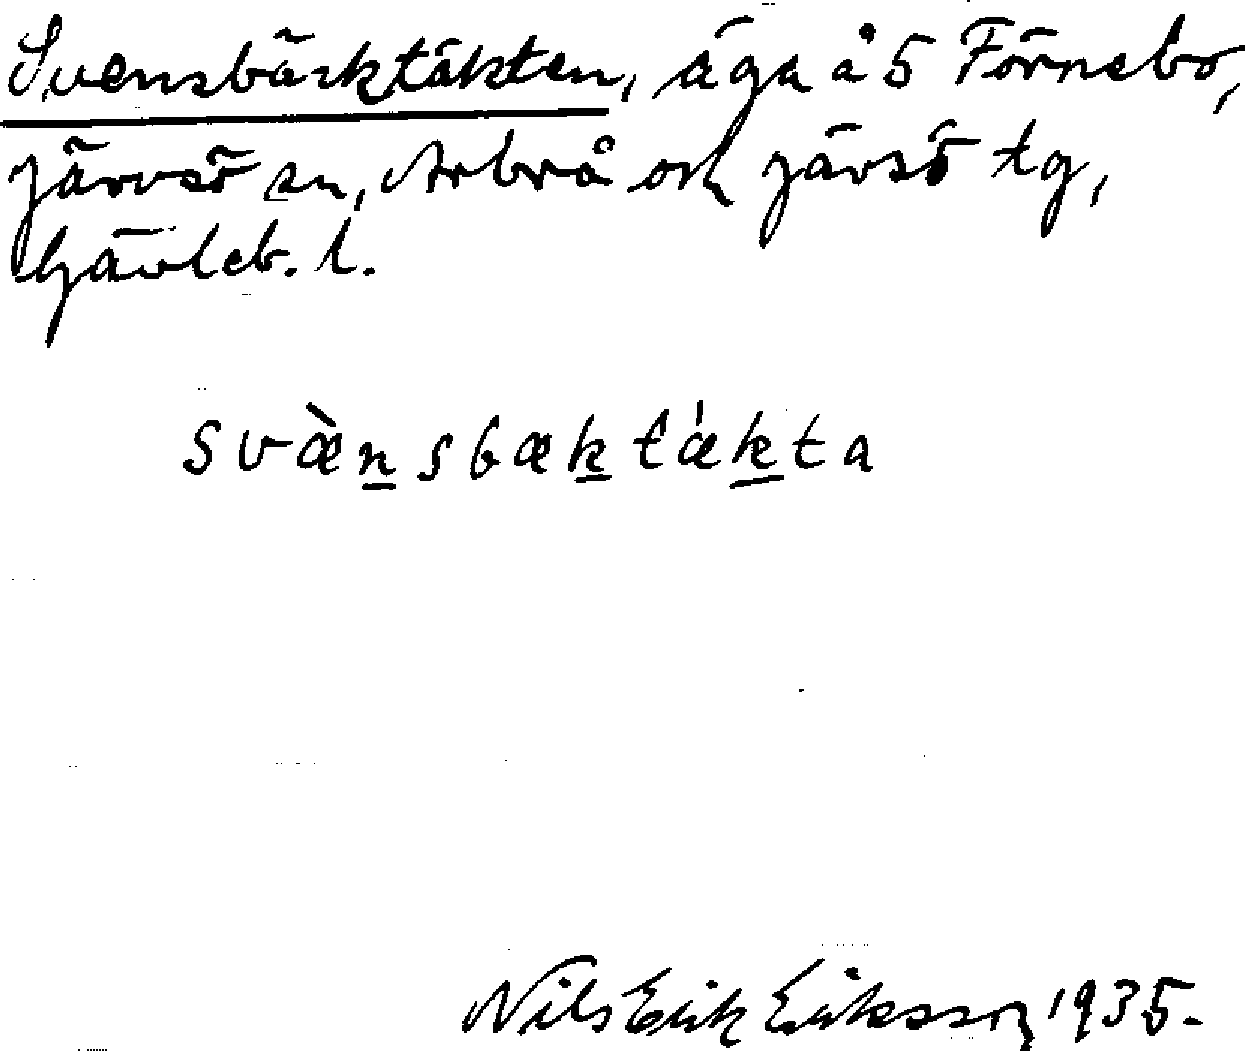 Svensbäcktäkten, äga å 5 Förnebo,
Järvsö sn, Arbrå och Järvsö tg,
Gävleb. l.
svæ̀n̲sbæk̲tǽk̲ta
Nils Erik Eriksson 1935.